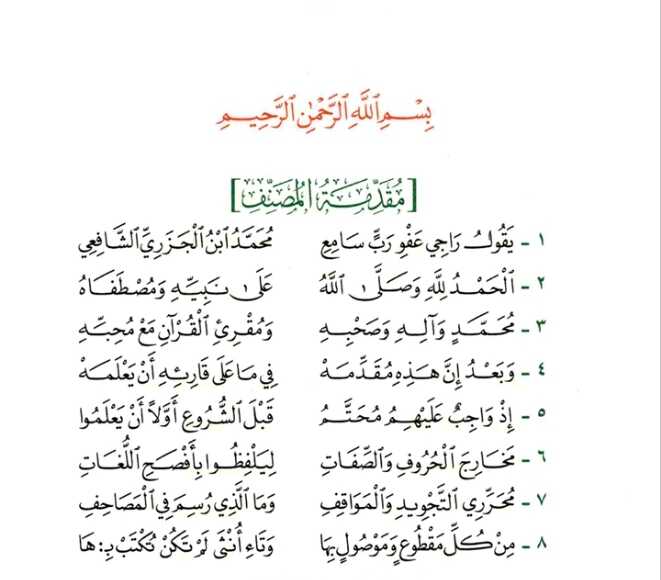 بِسْمِ ٱللَّهِ ٱلرَّحْمَٰنِ ٱلرَّحِيمِ
[مُقَدِّمَةُ المُصَنِّفِ]
١ - يَقُولُ رَاجِي عَفْوِ رَبٍّ سَامِعِ مُحَمَّدُ ابْنُ الْجَزَرِيِّ الشَّافِعِي
٢ - الْحَمْدُ لِلَّهِ وَصَلَّى اللَّهُ عَلَى نَبِيِّهِ وَمُصْطَفَاهُ
٣ - مُحَمَّدٍ وَآلِهِ وَصَحْبِهِ وَمُقْرِئِ الْقُرْآنِ مَعْ مُحِبِّهِ
٤ - وَبَعْدُ إِنَّ هَذِهِ مُقَدِّمَهْ فِي مَا عَلَى قَارِئِهِ أَنْ يَعْلَمَهْ
٥ - إِذْ وَاجِبٌ عَلَيْهِمُ مُحَتَّمُ قَبْلَ الشُّرُوعِ أَوَّلاً أَنْ يَعْلَمُوا
٦ - مَخَارِجَ الْحُرُوفِ وَالصِّفَاتِ لِيَلْفِظُوا بِأَفْصَحِ اللُّغَاتِ
٧ - مُحَرِّرِي التَّجْوِيدِ وَالْمَوَاقِفِ وَمَا الَّذِي رُسِمَ فِي الْمَصَاحِفِ
٨ - مِنْ كُلِّ مَقْطُوعٍ وَمَوْصُولٍ بِهَا وَتَاءِ أُنْثَى لَمْ تَكُنْ تُكْتَبْ بِـ: هَا